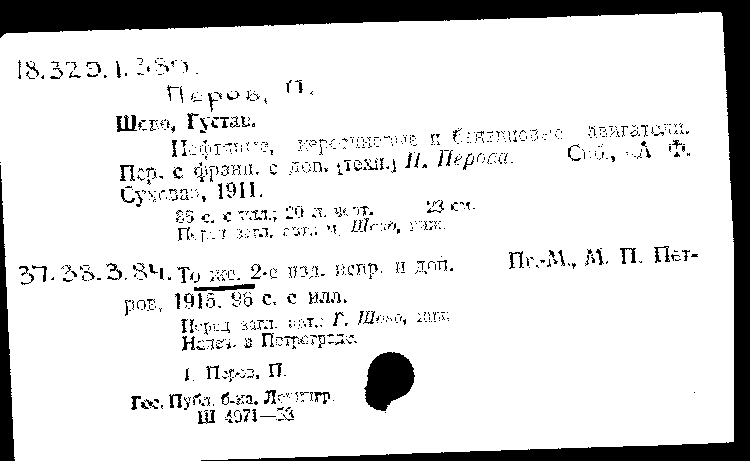 18.320.1.380.
Перов, П.
Шево, Густав.
Нефтяные, керосиновые и бензиновые двигатели.
Пер. с франц. с доп. [техн.] П. Перова. Спб., А. Ф.
Сухова, 1911.
86 с. с илл.; 20 л. черт. 23 см.
Перед загл. авт.: Шево, инж.
37.38.3.84. То же. 2-е изд. испр. и доп. Пг.-М., М. П. Пет-
ров, 1915. 96 с. с илл.
Перед загл. авт.: Г. Шево, инж.
Напеч. в Петрограде.
I. Перов, П.
Гос. Публ. б-ка. Ленингр.
Ш 4071—53